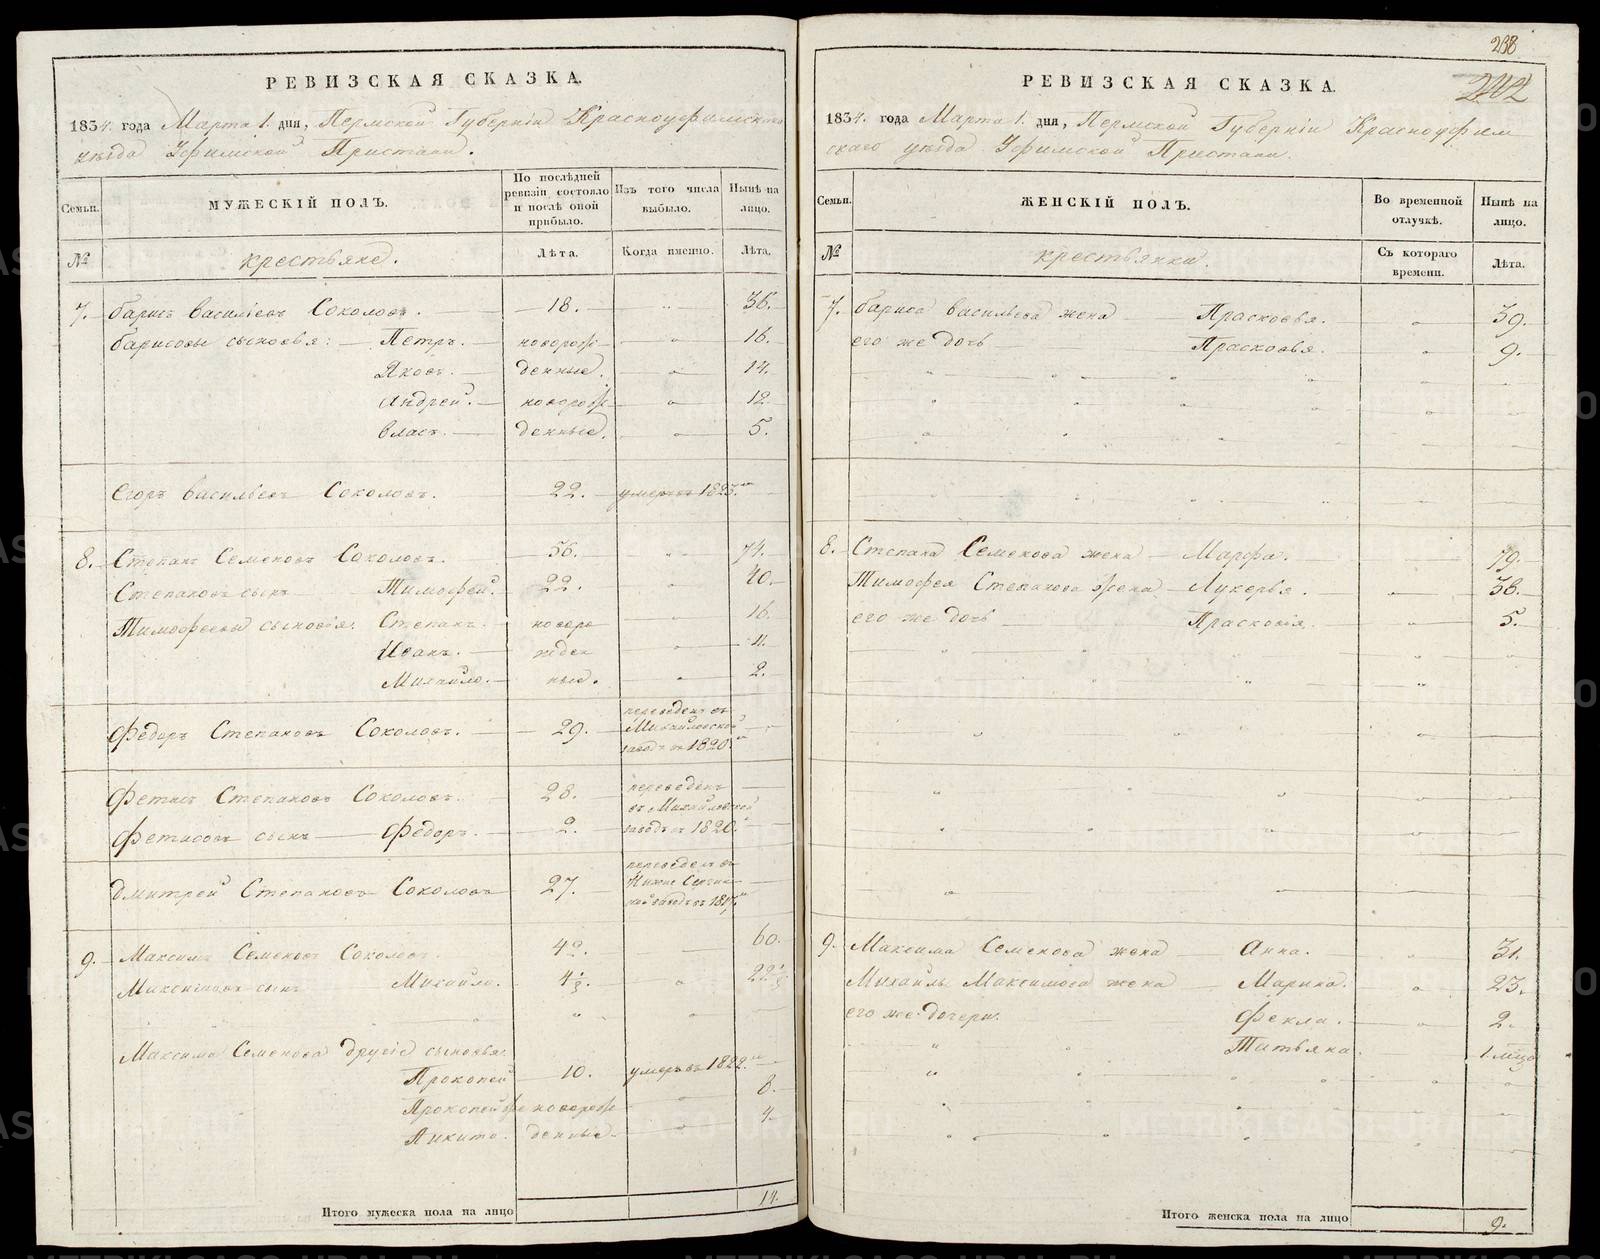 РЕВИЗСКАЯ СКАЗКА.
1834. года Марта 1. дня, Пермской Губернiи Красноуфимскаго
уѣзда Уфимской Пристани.
Семьи. МУЖЕСКIЙ ПОЛЪ. По послѣдней ревизiи состояло и послѣ оной прибыло. Изъ того числа выбыло. Нынѣ на лицо.
№ крестьяне. Лѣта. Когда именно. Лѣта.
7. Барисъ Васильевъ Соколовъ. 18. 36.
Барисовы сыновья: Петръ. новорож 16.
Яковъ. денные. 14.
Андрей. новорож 12
Власъ. денные. 5.
Егоръ Васильевъ Соколовъ. 22. умеръ въ 1825.
8. Степанъ Семеновъ Соколовъ. 56. 74.
Степановъ сынъ Тимофей. 22. 40.
Тимофеевы сыновiя. Степанъ. новоро 16.
Иванъ. жден 4.
Михайло. ные. 2.
Федоръ Степановъ Соколовъ. 29. переведенъ въ Михайловской заводъ въ 1820.
Фетисъ Степановъ Соколовъ. 28. переведенъ
въ Михайловской
Фетисовъ сынъ Федоръ. 2. заводъ въ 1820.
Дмитрей Степановъ Соколовъ 27. переведенъ въ Нижне Сергин заводъ въ
9. Максимъ Семеновъ Соколовъ. 42. 60.
Максимовъ сынъ Михайло. 4 22
Максима Семенова другiе сыновья:
Прокопей 10. умеръ въ 1822.
Прокопей же новорож 8.
Никита. денные. 4.
Итого мужеска пола на лицо 14.
238
242
РЕВИЗСКАЯ СКАЗКА.
1834. года Марта 1. дня, Пермской Губернiи Красноуфим
скаго уѣзда Уфимской Пристани.
Семьи. ЖЕНСКIЙ ПОЛЪ. Во временной отлучкѣ. Нынѣ на лицо.
№ крестьянка. Съ котораго времени. Лѣта.
7. Бариса Васильева жена Прасковья. 39.
его же дочь Прасковья. 9.
8. Степана Семенова жена Марфа. 79.
Тимофея Степанова жена Лукерья. 38.
его же дочь Прасковiя. 5.
9. Максима Семенова жена Анна. 31.
Михайлы Максимова жена Марина. 23.
его же дочери. Фекла. 2.
Татьяна. 1 мѣся
Итого женска пола на лицо 9.
METRIKI.CASO-URAL.RU